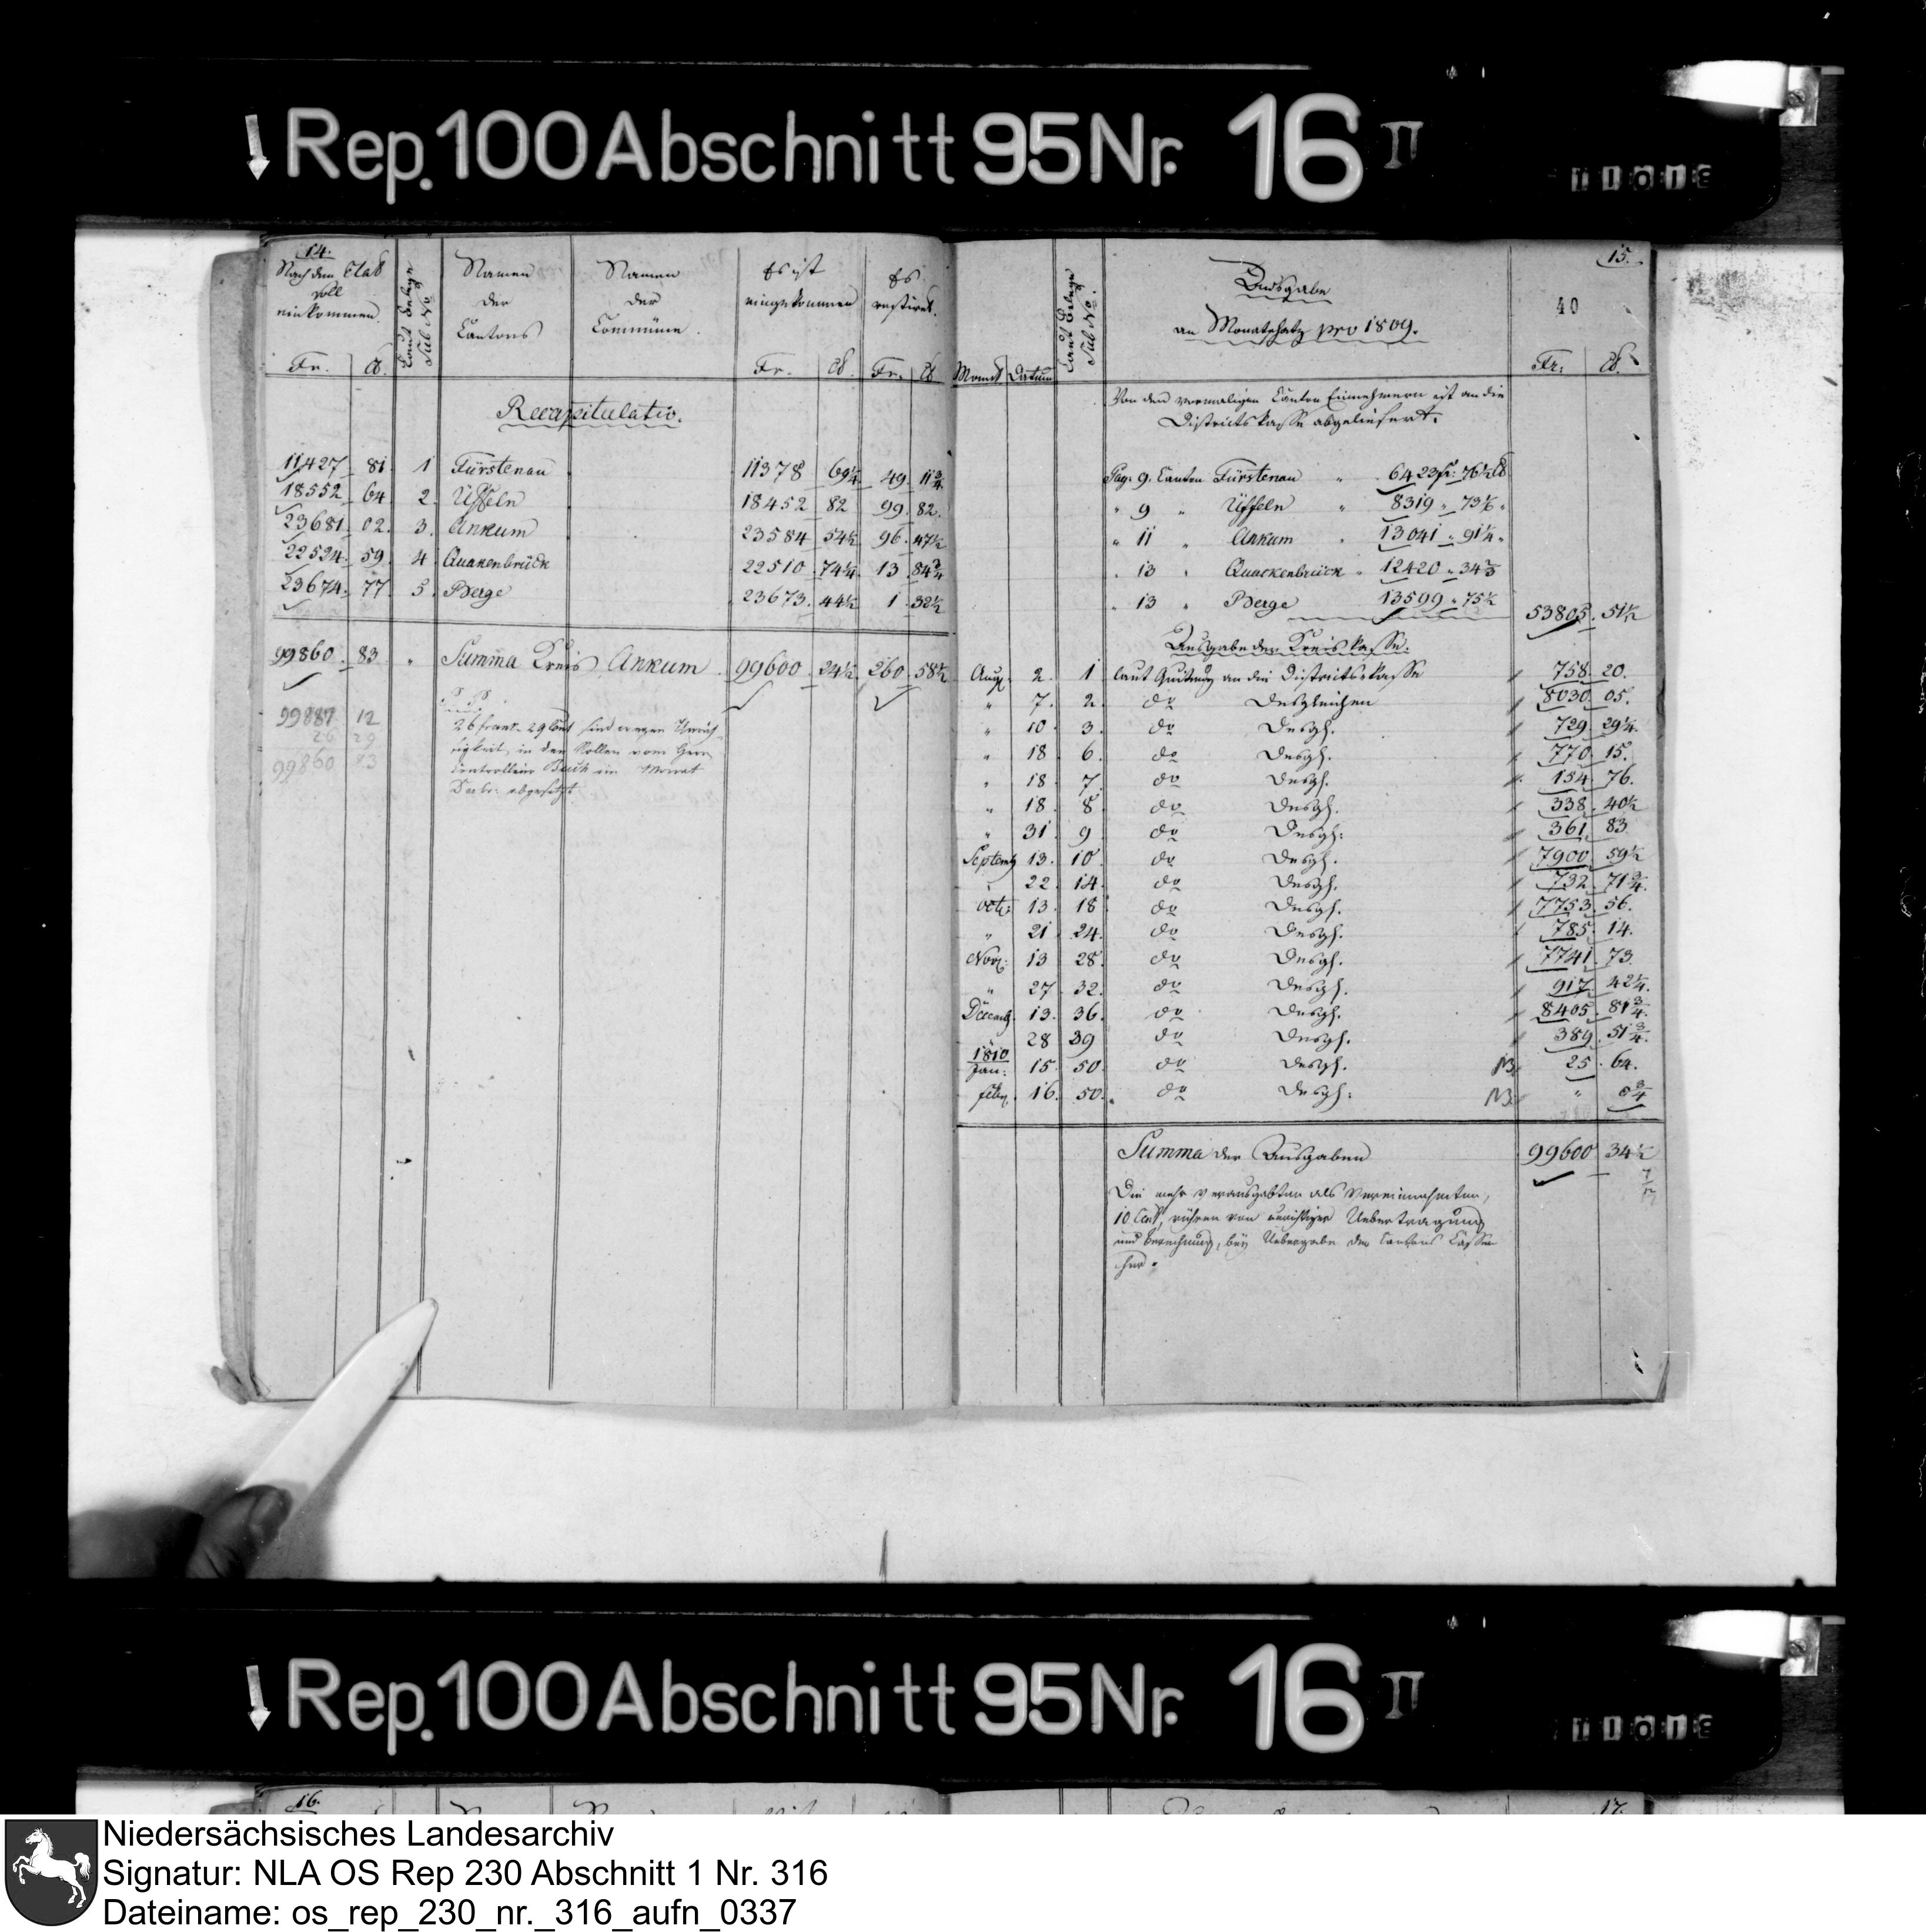 Rep. 100 Abschnitt 95 Nr. 16 II
14.
Nach dem Etat
soll
einkommen.
Laut Belege
Sub No.
Namen
der
Cantons
Namen
der
Commüne.
Es ist
eingekommen
Es
restiret.
Fr. Ct. Fr. Ct. Fr. Ct.
Recapitulatio.
11427 81 1 Fürstenau 11378 69¼ 49 11¾
18552 64 2. Üffeln 18452 82 99 82.
23681 02. 3. Ankum 23584 54½ 96 47½
22524 59 4 Quakenbrück 22510 74¼ 13 84¾
23674 77 5. Berge 23673 44½ 1 32½
99860 83 " Summa Kreis Ankum 99600 24½ 260 58½
99887 12
26 29
99860 83
26 frank 29 Cent sind wegen
in den Rollen vom Herrn
Controlleur im Monat
Decbr: abgesetzt
15.
40
Monat Datum
Laut Belege
Sub No.
Ausgabe
an Monatschatz pro 1809.
Fr: Ct.
Von den vormaligen Canton Einnehmern ist an die
Districts kasse abgeliefert.
Pag. 9. Canton Fürstenau " 6423 fr: 76½ Ct
" 9 " Üffeln " 8319 " 73½ "
" 11 " Ankum " 13041 " 91¼ "
" 13 " Quackenbrück " 12420 " 34¾
" 13 " Berge 13599 " 75½ 53805 51½
Ausgabe der Kreis kasse.
Aug. 2. 1 laut Quitung an die Districtskasse 758 20.
" 7. 2. do desgleichen 8030 05.
" 10 3. do desgl. 729 29¼
" 18 6. do desgl. 770 15.
" 18 7. do desgl. 154 76.
" 18 8 do desgl. 338 40½
" 31 9 do desgl: 361 83
Septemb 13. 10 do desgl. 7900 59½
" 22 14 do desgl. 732 71¾
octb: 13 18 do desgl. 7753 56.
" 21 24. do desgl. 785 14.
Nov: 13 28. do desgl. 7741 73
" 27 32. do desgl. 917 42¼
Decemb. 13. 36. do desgl. 8405 81¾
" 28 39 do desgl. 389 51¾
1810
Jan: 15. 50 do desgl. NB. 25 64.
febr. 16. 50. do desgl: NB. "
Summa der Ausgaben 99600 34½
Die mehr verausgabten als vereinnahmten,
10 Cent, rühren von unrichtiger Uebertragung
und Berechnung, bey Uebergabe der Cantons Cassen
her.
Rep. 100 Abschnitt 95 Nr. 16 II
16.
17.
Niedersächsisches Landesarchiv
Signatur: NLA OS Rep 230 Abschnitt 1 Nr. 316
Dateiname: os_rep_230_nr._316_aufn_0337